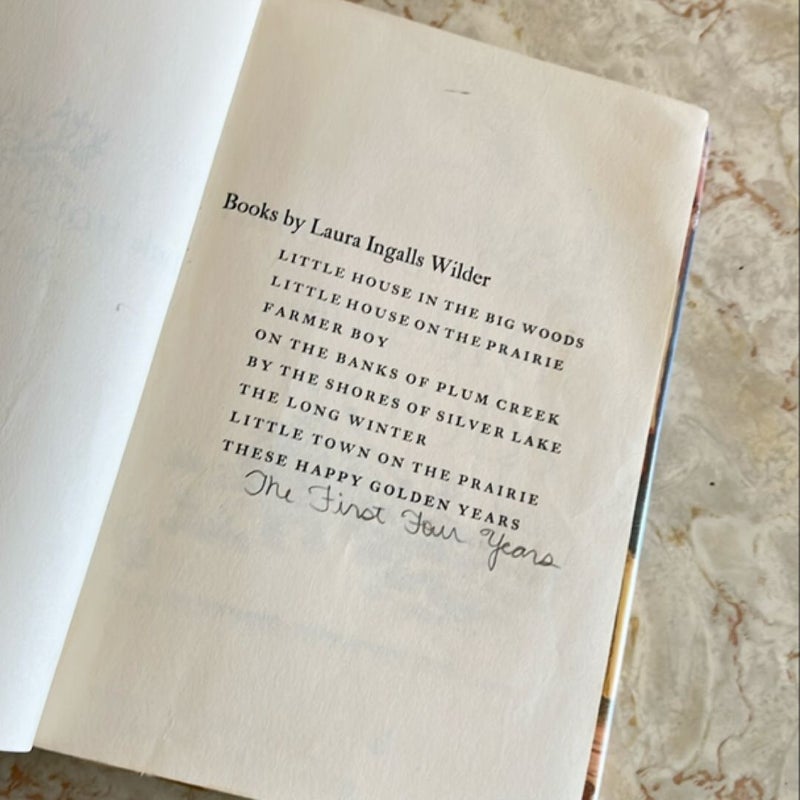 Books by Laura Ingalls Wilder
LITTLE HOUSE IN THE BIG WOODS
LITTLE HOUSE ON THE PRAIRIE
FARMER BOY
ON THE BANKS OF PLUM CREEK
BY THE SHORES OF SILVER LAKE
THE LONG WINTER
LITTLE TOWN ON THE PRAIRIE
THESE HAPPY GOLDEN YEARS
The First Four Years